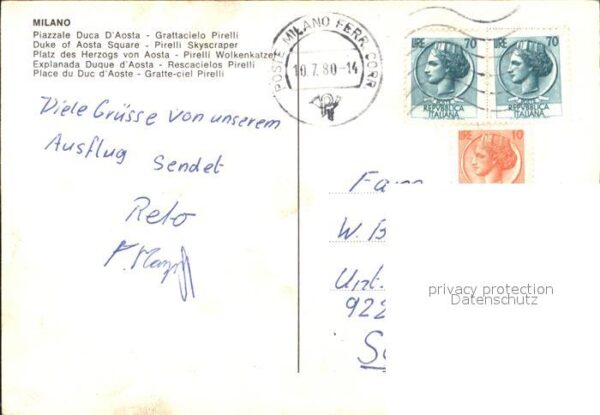 MILANO
Piazzale Duca D'Aosta - Grattacielo Pirelli
Duke of Aosta Square - Pirelli Skyscraper
Platz des Herzogs von Aosta - Pirelli Wolkenkratzer
Explanada Duque d'Aosta - Rescacielos Pirelli
Place du Duc d'Aoste - Gratte-ciel Pirelli
POSTE MILANO FERR. CORR
10.7.80-14
LIRE 70
REPVBBLICA
ITALIANA
LIRE 70
REPVBBLICA
ITALIANA
LIRE 10
Viele Grüsse von unserem
Ausflug sendet
Reto
Fam
W. B
Unt.
922
S
privacy protection
Datenschutz